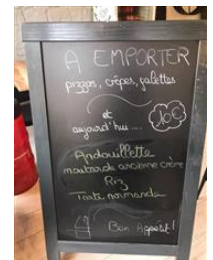 A EMPORTER
pizzas, crêpes, galettes
et
aujourd'hui...
10€
Andouillette
moutarde ancienne crème
Riz
Tarte normande
Bon Appétit!